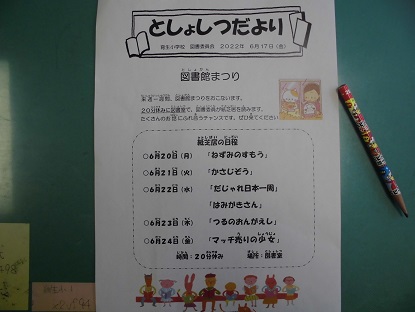 としょしつだより
小学校 図書委員会 2022年 6月17日(金)
としょかん
図書館まつり
来週一週間、図書館まつりをおこないます。
20分休みに図書室で、図書委員が紙芝居を読みます。
たくさんのお話にふれ合うチャンスです。ぜひ来てください
紙芝居の日程
○6月20日(月) 「ねずみのすもう」
○6月21日(火) 「かさじぞう」
○6月22日(水) 「だじゃれ日本一周」
「はみがきさん」
○6月23日(木) 「つるのおんがえし」
○6月24日(金) 「マッチ売りの少女」
時間:20分休み 場所:図書室